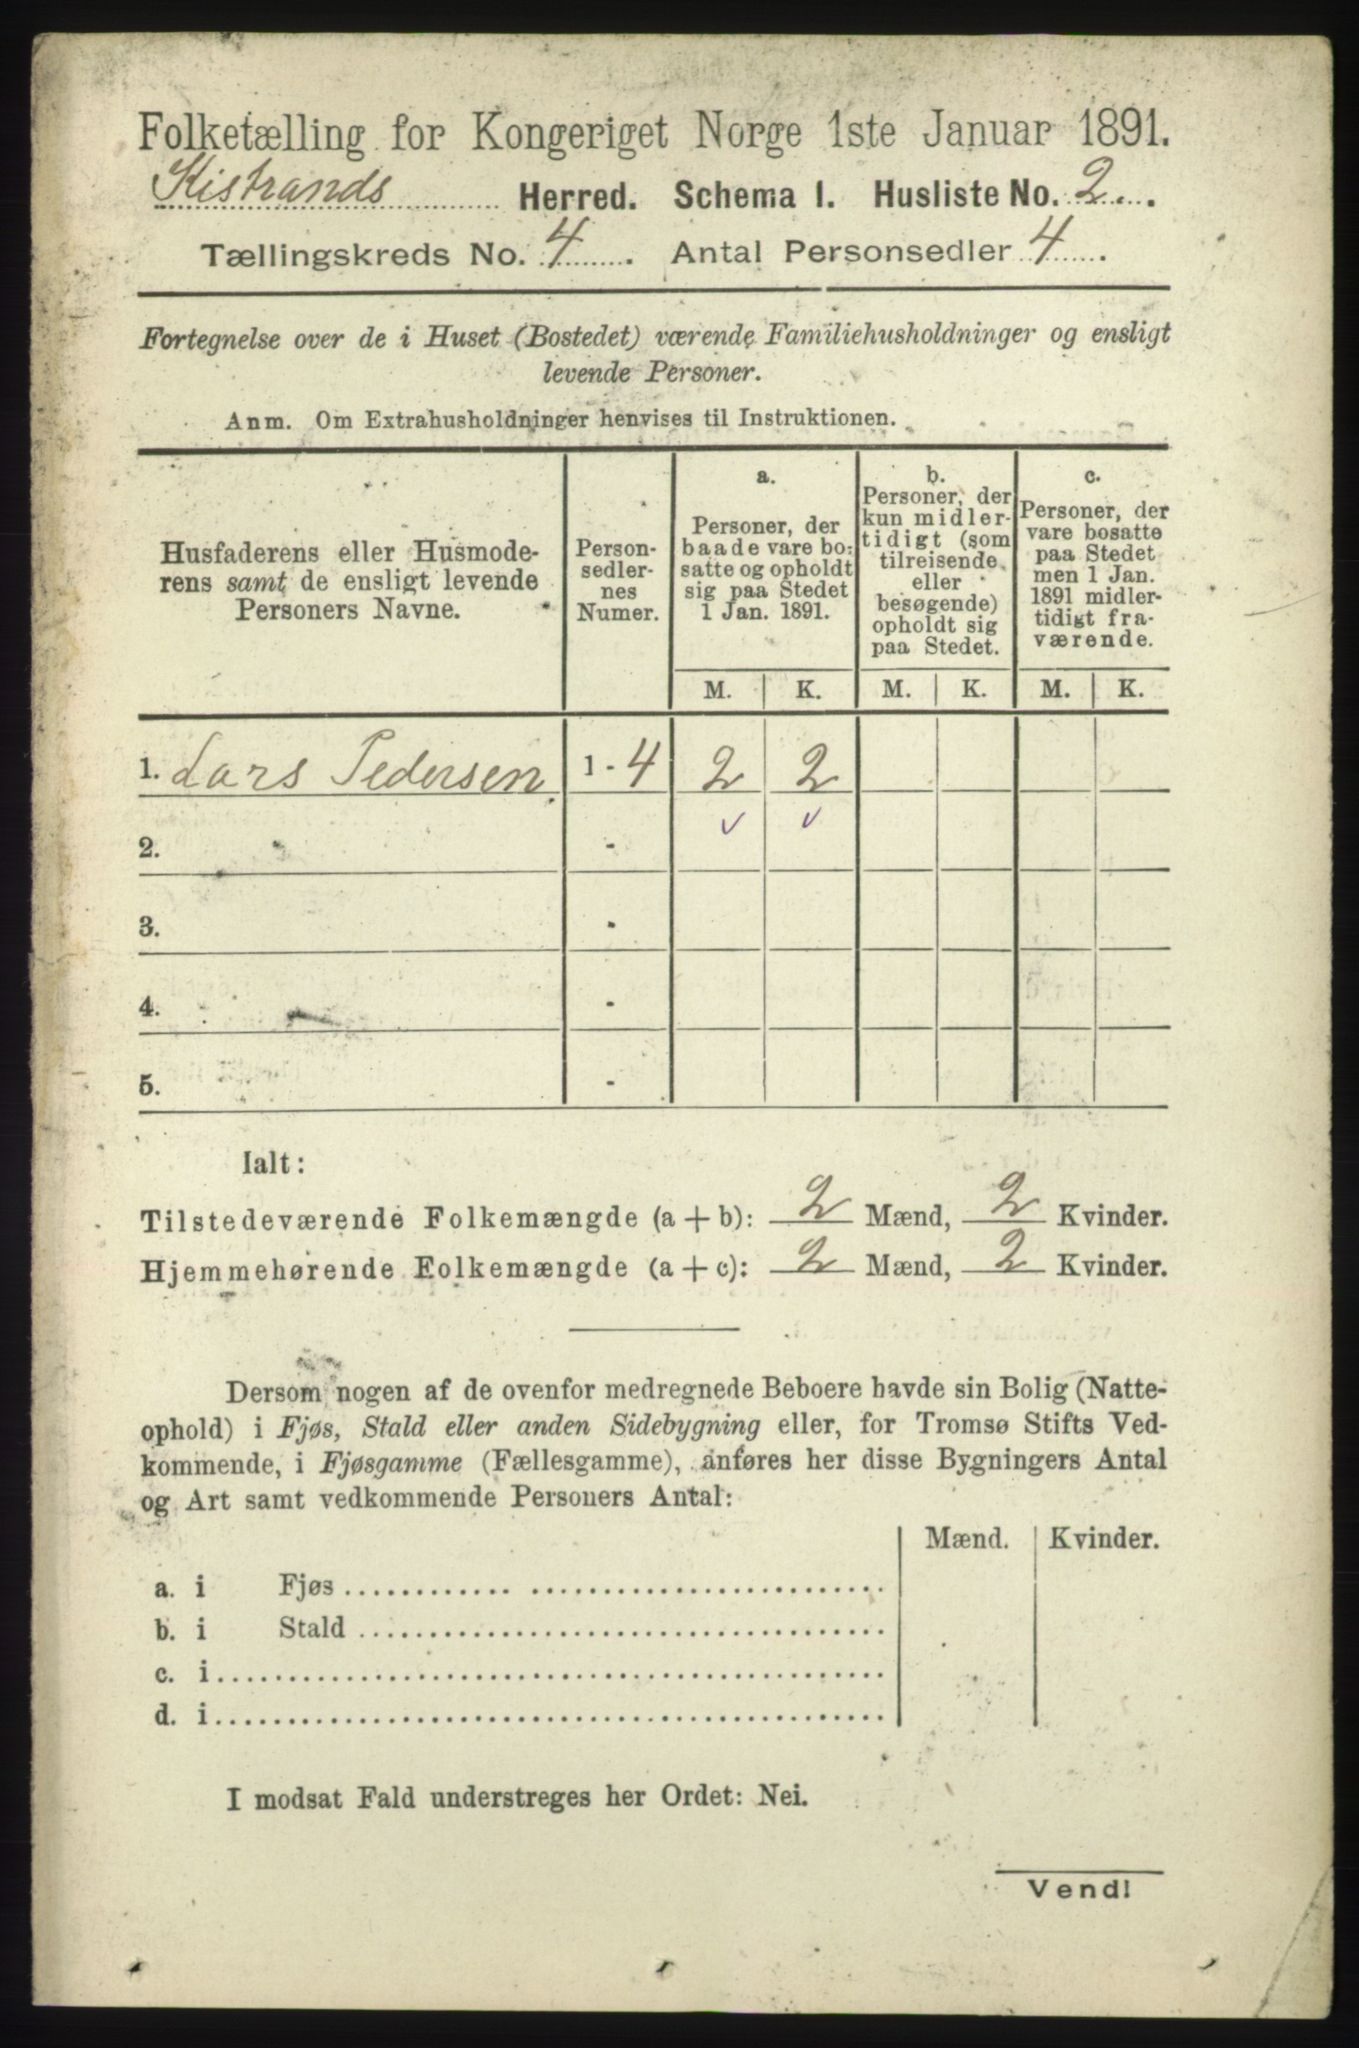 Folketælling for Kongeriget Norge 1ste Januar 1891.
Kistrands Herred. Schema I. Husliste No. 2.
Tællingskreds No. 4. Antal Personsedler 4.
Fortegnelse over de i Huset (Bostedet) værende Familiehusholdninger og ensligt
levende Personer.
Anm. Om Extrahusholdninger henvises til Instruktionen.
Husfaderens eller Husmode-
rens samt de ensligt levende
Personers Navne.
Person-
sedler-
nes
Numer.
a.
Personer, der
baade vare bo-
satte og opholdt
sig paa Stedet
1 Jan. 1891.
b.
Personer, der
kun midler-
tidigt (som
tilreisende
eller
besøgende)
opholdt sig
paa Stedet.
c.
Personer, der
vare bosatte
paa Stedet
men 1 Jan.
1891 midler-
tidigt fra-
værende.
M. K. M. K. M. K.
1. Lars Pedersen 1 - 4 2 2
2. -
3. -
4. -
5. -
Ialt:
Tilstedeværende Folkemængde (a + b): 2 Mænd, 2 Kvinder.
Hjemmehørende Folkemængde (a + c): 2 Mænd, 2 Kvinder.
Dersom nogen af de ovenfor medregnede Beboere havde sin Bolig (Natte-
ophold) i Fjøs, Stald eller anden Sidebygning eller, for Tromsø Stifts Ved-
kommende, i Fjøsgamme (Fællesgamme), anføres her disse Bygningers Antal
og Art samt vedkommende Personers Antal:
Mænd. Kvinder.
a. i Fjøs
b. i Stald
c. i
d. i
I modsat Fald understreges her Ordet: Nei.
Vend!